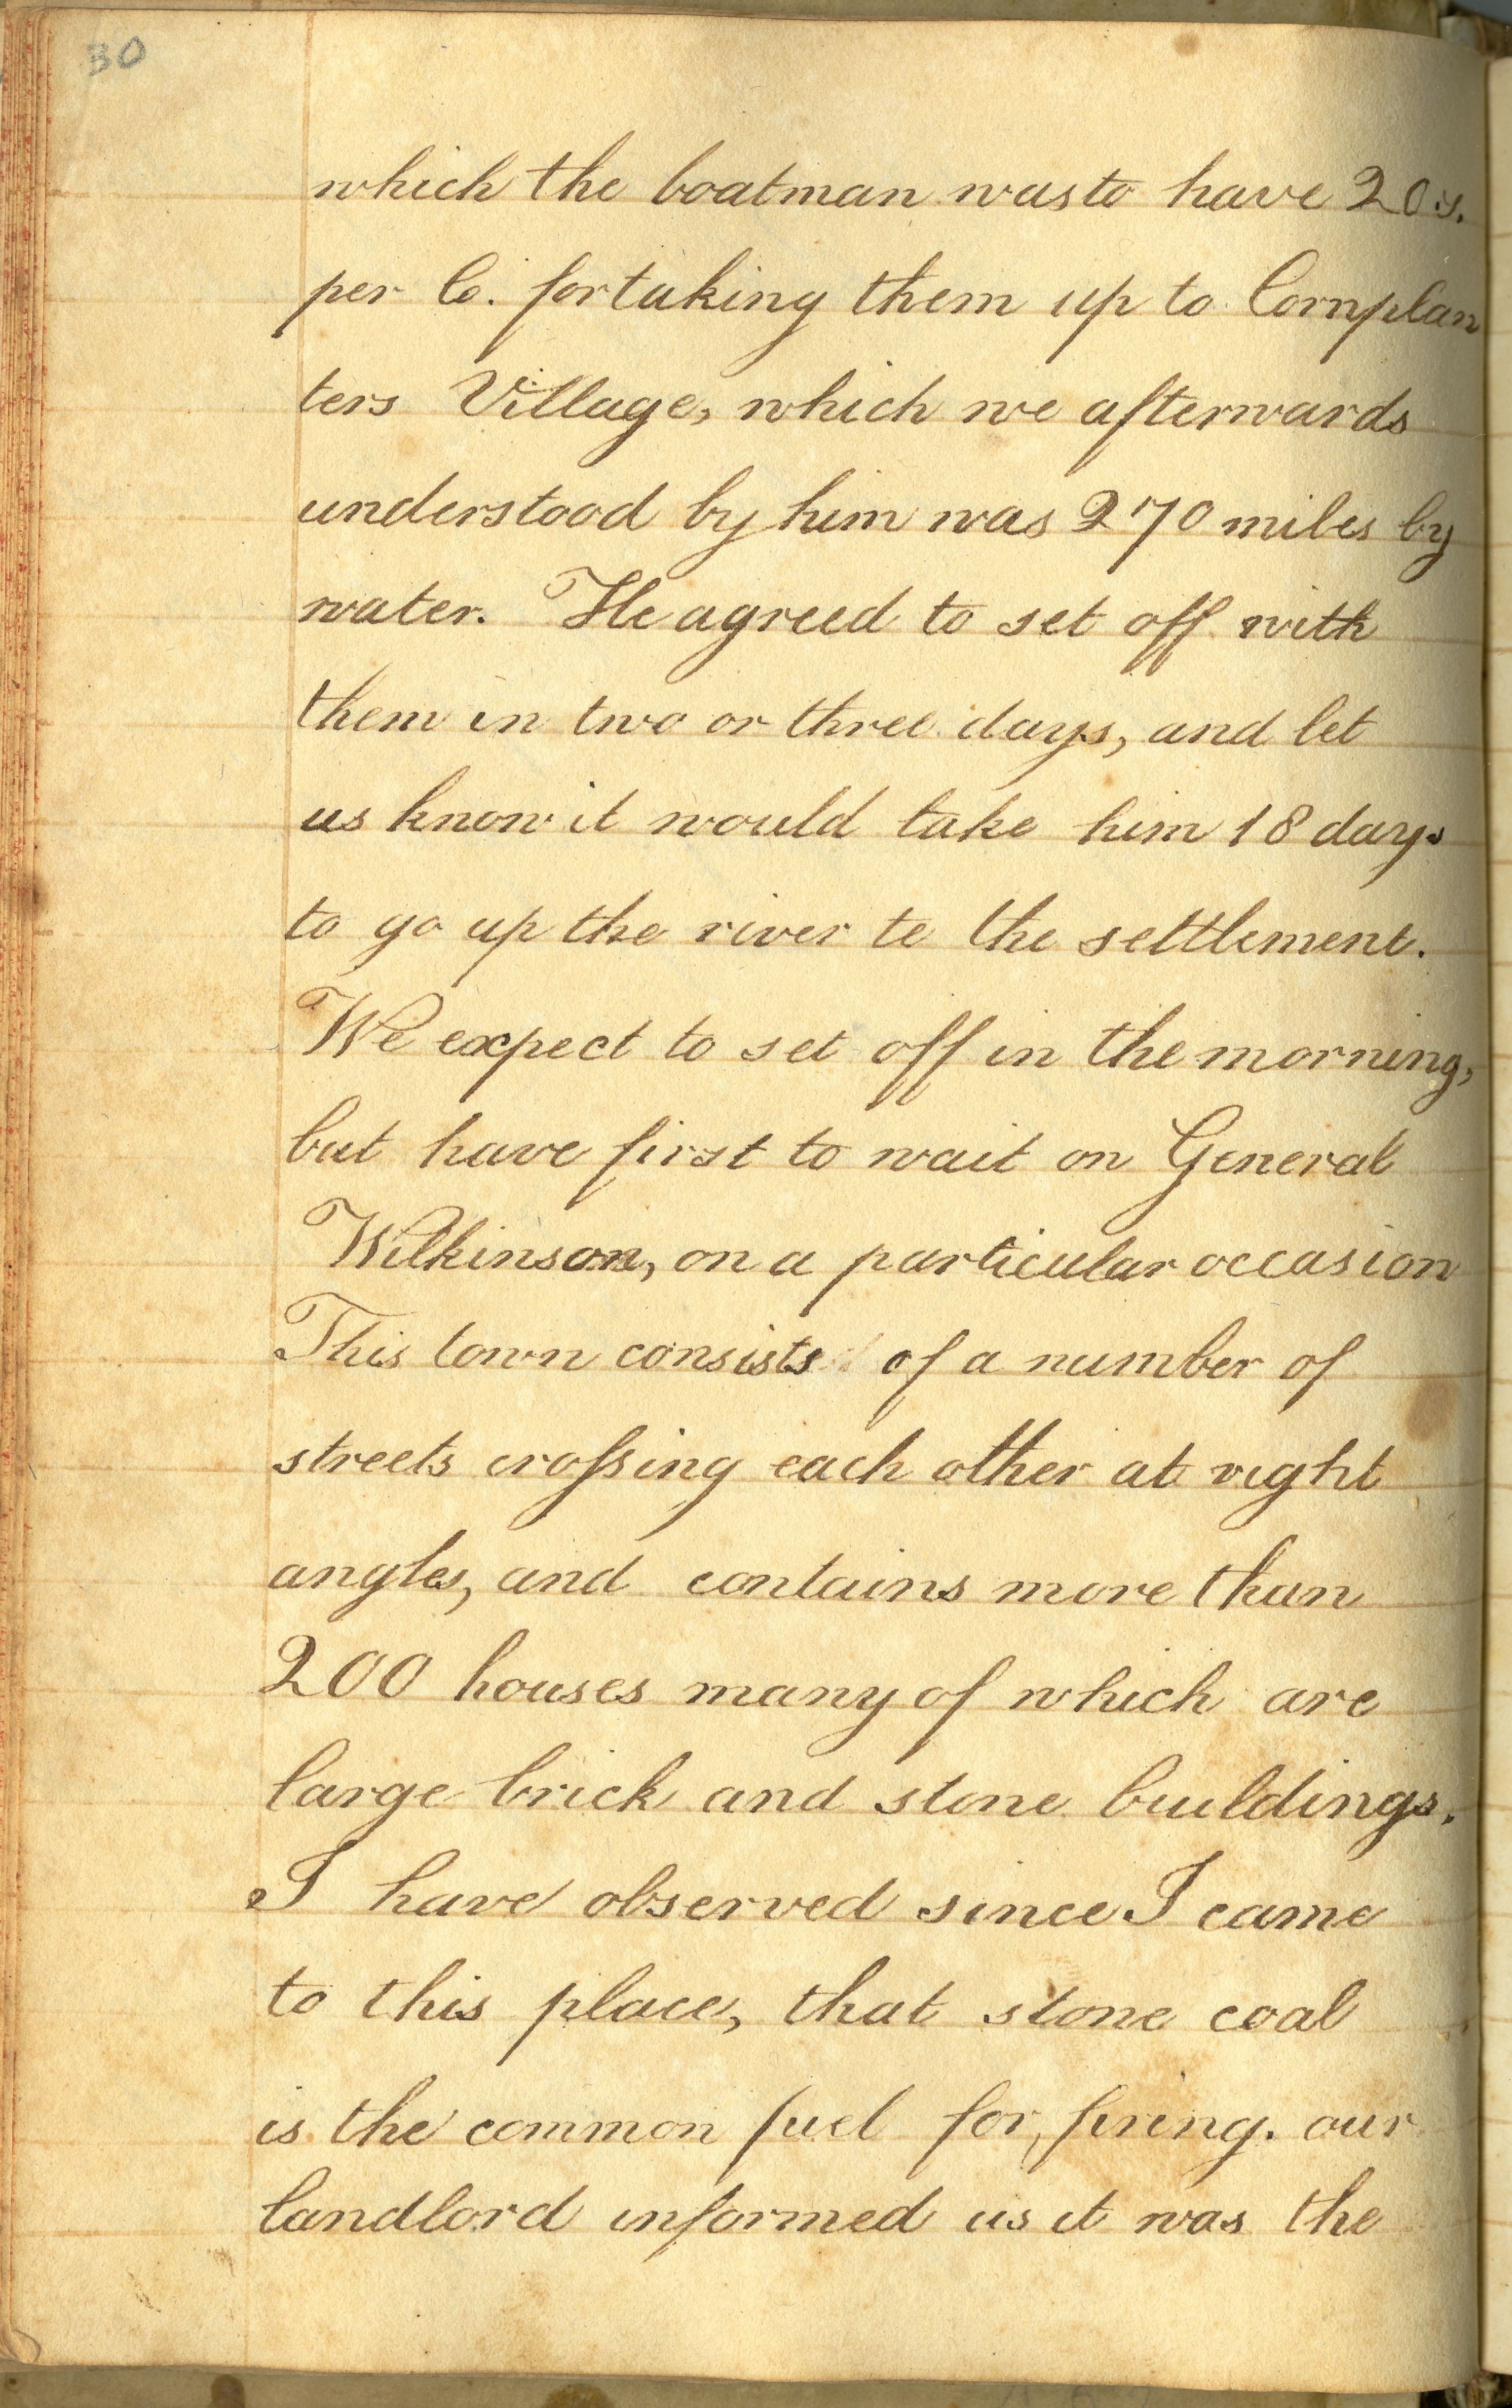 30
which the boatman was to have 20s.
per C. for taking them up to Cornplan
ters Village, which we afterwards
understood by him was 270 miles by
water. He agreed to set off with
them in two or three days, and let
us know it would take him 18 days
to go up the river te the settlement.
We expect to set off in the morning,
but have first to wait on General
Wilkinson, on a particular occasion
This town consists of a number of
streets crofsing each other at right
angles, and contains more than
200 houses many of which are
large brick and stone buildings.
I have observed since I came
to this place, that stone coal
is the common fuel for firing. our
landlord informed us it was the